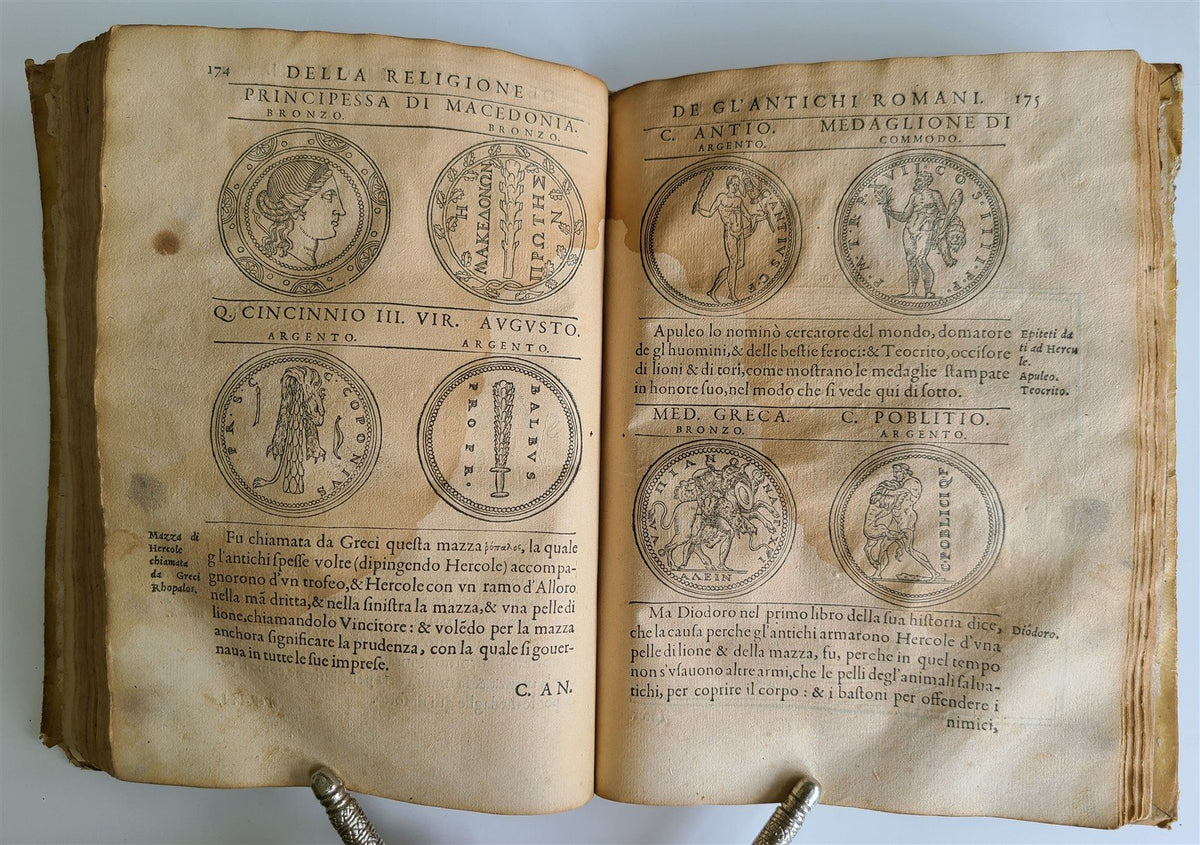 174
DELLA RELIGIONE
PRINCIPESSA DI MACEDONIA.
BRONZO. BRONZO.
ΜΑΚΕΔΟΝΩΝ
Q. CINCINNIO III. VIR. AVGVSTO.
ARGENTO. ARGENTO.
PR. S. C C. COPONIVS
BALBVS
PRO PR.
Mazza di
Hercole
chiamata
da Greci
Rhopalos.
Fu chiamata da Greci questa mazza ῥόπαλος, la quale
gl'antichi spesse volte (dipingendo Hercole) accompa-
gnorono d'vn trofeo, & Hercole con vn ramo d'Alloro
nella mã dritta, & nella sinistra la mazza, & vna pelle di
lione, chiamandolo Vincitore: & volẽdo per la mazza
anchora significare la prudenza, con la quale si gouer-
naua in tutte le sue imprese.
C. AN.
DE GL'ANTICHI ROMANI. 175
C. ANTIO. MEDAGLIONE DI
ARGENTO. COMMODO.
C. ANTIVS C. F.
P. M. TR. P. VII. COS. IIII. P. P.
Apuleo lo nominò cercatore del mondo, domatore
de gl'huomini, & delle bestie feroci: & Teocrito, occisore
di lioni & di tori, come mostrano le medaglie stampate
in honore suo, nel modo che si vede qui di sotto.
Epiteti da
ti ad Hercu
le.
Apuleo.
Teocrito.
MED. GRECA. C. POBLITIO.
BRONZO. ARGENTO.
ΛΛΕΙΝ
C POBLICI Q F
Ma Diodoro nel primo libro della sua historia dice,
che la causa perche gl'antichi armarono Hercole d'vna
pelle di lione & della mazza, fu, perche in quel tempo
non s'vsauono altre armi, che le pelli degl'animali salua-
tichi, per coprire il corpo: & i bastoni per offendere i
nimici,
Diodoro.